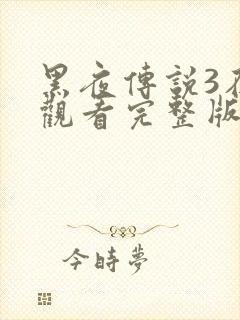 黑夜傳説3在
觀看完整版
今時夢